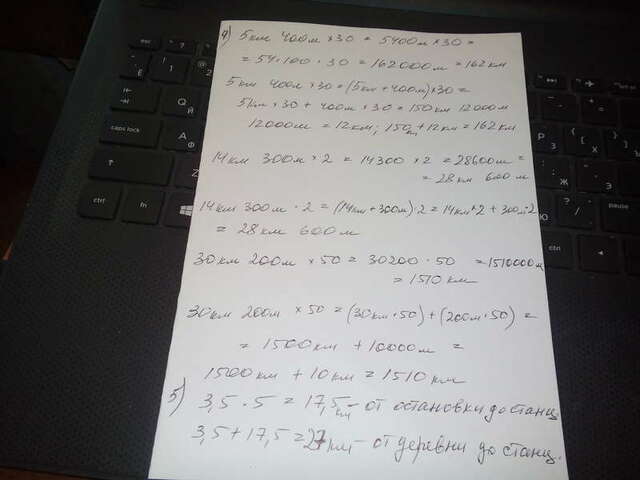 4) 5 км 400 м × 30 = 5400 м × 30 =
= 54·100·30 = 162000 м = 162 км
5 км 400 м × 30 = (5 км + 400 м) × 30 =
5 км × 30 + 400 м × 30 = 150 км 12000 м
12000 м = 12 км, 150 км + 12 км = 162 км
14 км 300 м × 2 = 14300 × 2 = 28600 м =
= 28 км 600 м
14 км 300 м · 2 = (14 км + 300 м) · 2 = 14 км · 2 + 300 м · 2
= 28 км 600 м
30 км 200 м × 50 = 30200 · 50 = 1510000 м
= 1510 км
30 км 200 м × 50 = (30 км · 50) + (200 м · 50) =
= 1500 км + 10000 м =
1500 км + 10 км = 1510 км
5) 3,5 · 5 = 17,5 км - от остановки до станц
3,5 + 17,5 = 21 км - от деревни до станц.
esc
caps lock
ctrl
fn
ctrl
pause